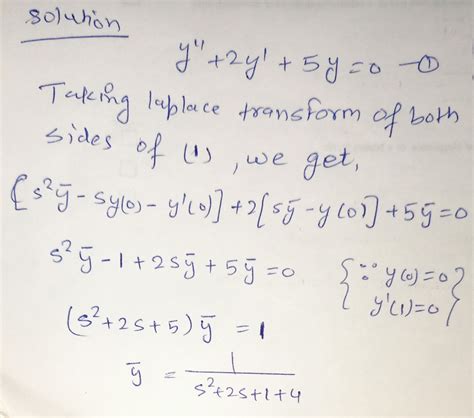 solution
y'' + 2y' + 5y = 0 —①
Taking laplace transform of both
sides of (1), we get,
[s²ȳ - sy(0) - y'(0)] + 2[sȳ - y(0)] + 5ȳ = 0
s²ȳ - 1 + 2sȳ + 5ȳ = 0 {∵ y(0) = 0
y'(1) = 0}
(s² + 2s + 5) ȳ = 1
ȳ = 1 / (s² + 2s + 1 + 4)